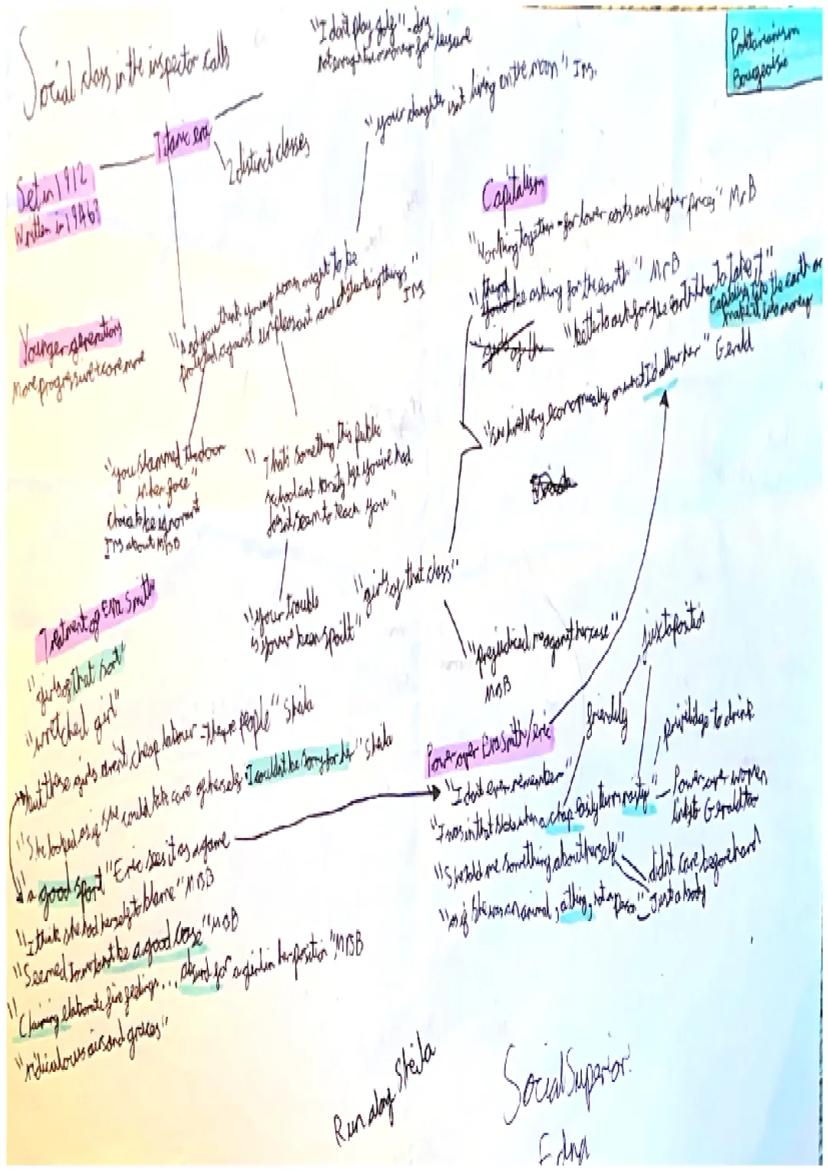 Social class in the inspector calls
"I don't play golf" - dry
not enough time or money for leisure
Proletarianism
Bougeoisie
"your daughter isn't living on the moon" Ins.
Titanic era
2 distinct classes
Set in 1912
Written in 1946?
Capitalism
"Working together - for lower costs and higher prices" Mr B
be asking for the earth" Mr B
"girls of the
"better to ask for the earth then to take it"
Capitalists take the earth and
make it into money
"And you think young women ought to be
protected against unpleasant and disturbing things"
Ins
Younger generations
More progressive + care more
"she lived very economically on what I'd allow her" Gerald
"you slammed the door
in her face"
Choice to be ignorant
Ins about MsB
"That's something this public
school and varsity life you've had
doesn't seem to teach you"
"your trouble
is you've been spoilt"
"girls of that class"
"prejudiced me against her case"
MsB
Treatment of Eva Smith
"girls of that sort"
"wretched girl"
"but these girls aren't cheap labour - they're people" Sheila
"She looked as if she could take care of herself - I couldn't be sorry for her" Sheila
"a good sport" Eric sees it as a game
"I think she had herself to blame" MsB
"Seemed to me not be a good case" MsB
"Claiming elaborate fine feelings... absurd for a girl in her position" MsB
"ridiculous airs and graces"
Power over Eva Smith/eric
juxtaposition
friendly
privilidge to drink
"I don't even remember"
"I was in that state when a chap easily turns nasty"
Power over women
links to Gerald too
"She told me something about herself"
didn't care beforehand
"as if she was an animal, a thing, not a person"
Just a body
Run along Sheila
Social Superior:
Edna